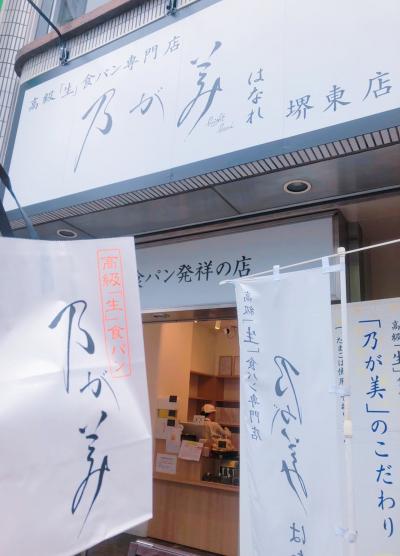 高級「生」食パン専門店
乃が美
はなれ
堺東店
食パン発祥の店
高級「生」食パン
乃が美
高級「生」食パン専門店
乃が美
は
高級「生」
「乃が美」のこだわり
たまごは使用